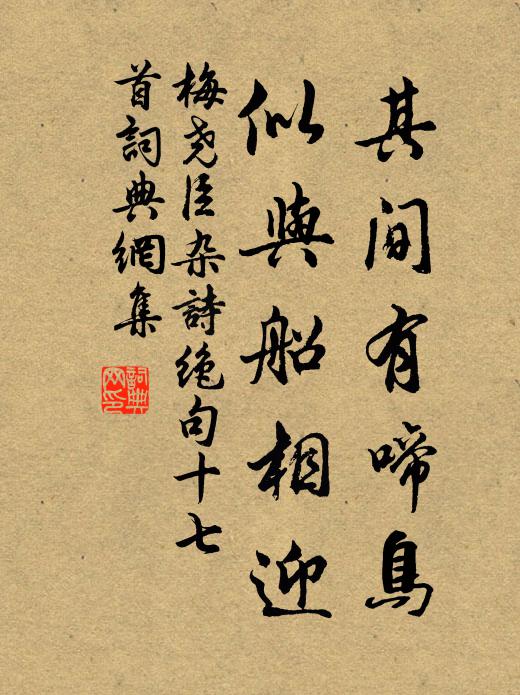 其间有啼鳥
似與船相迎
梅尧臣杂詩绝句十七
首詞典網集
詞典
网印